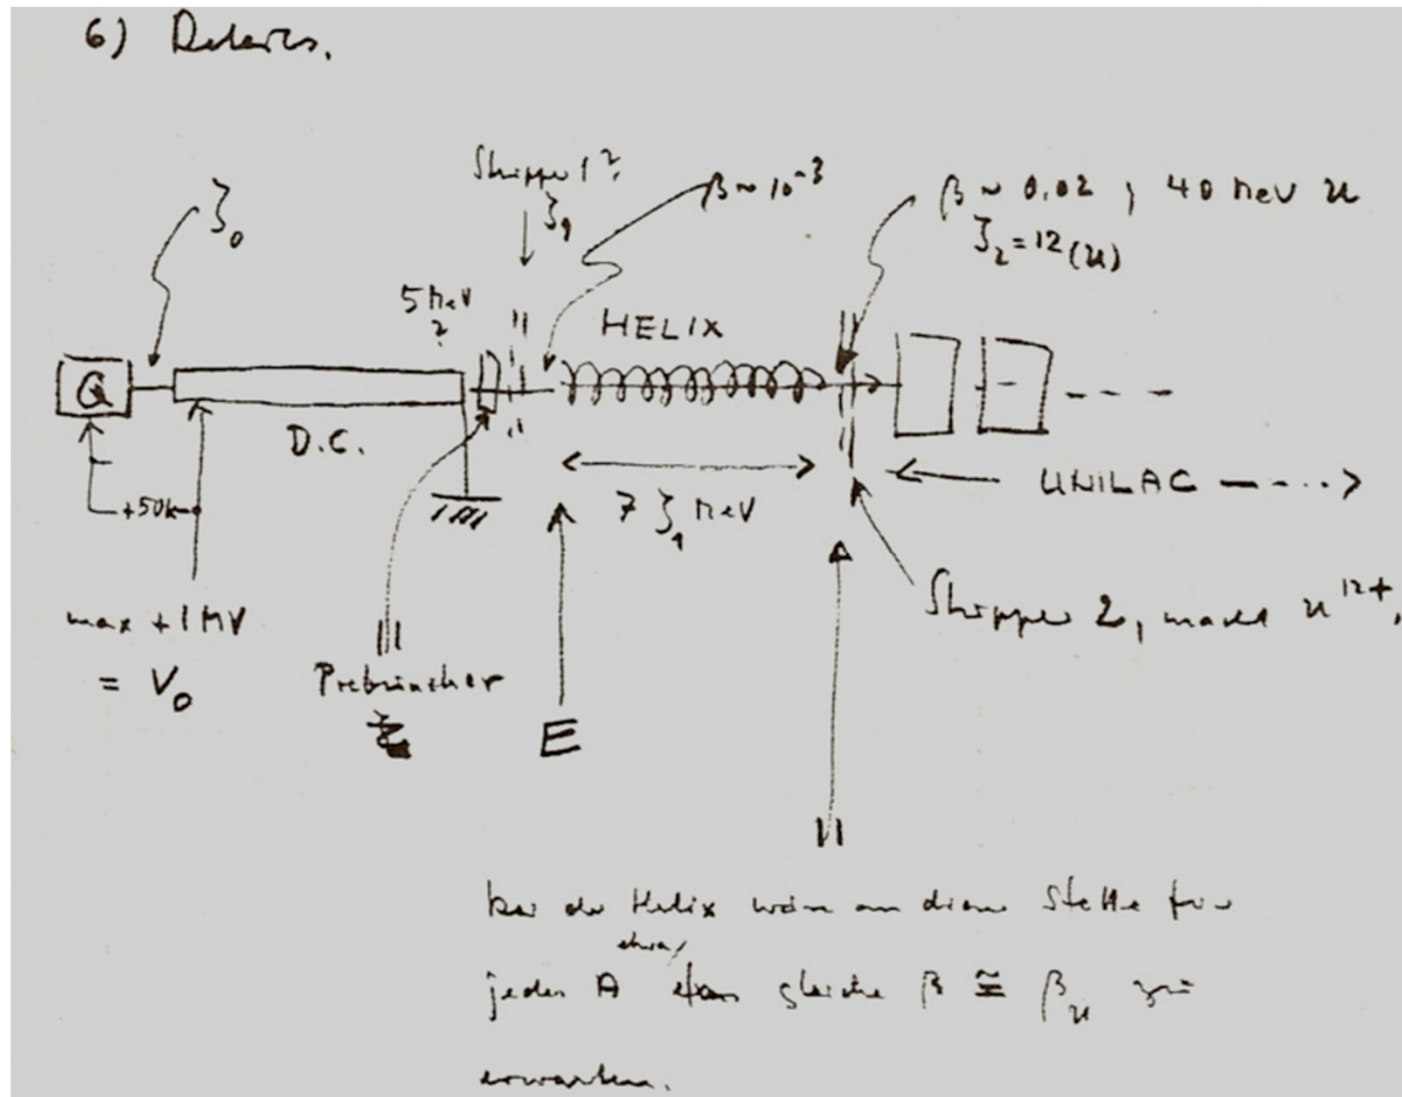 6) Details.
Stripper 1?
ζ₁
β ~ 10⁻³
β ~ 0.02 ; 40 MeV U
ζ₂ = 12 (U)
ζ₀
5 MeV
?
HELIX
Q
D.C.
+50k
7 ζ₁ MeV
UNILAC
max + 1 MV
= V₀
Prebuncher
E
Stripper 2, macht U¹²⁺,
bei der Helix wäre an dieser Stelle für
etwa
jedes A gleiche β ≅ β_U zu
erwarten.